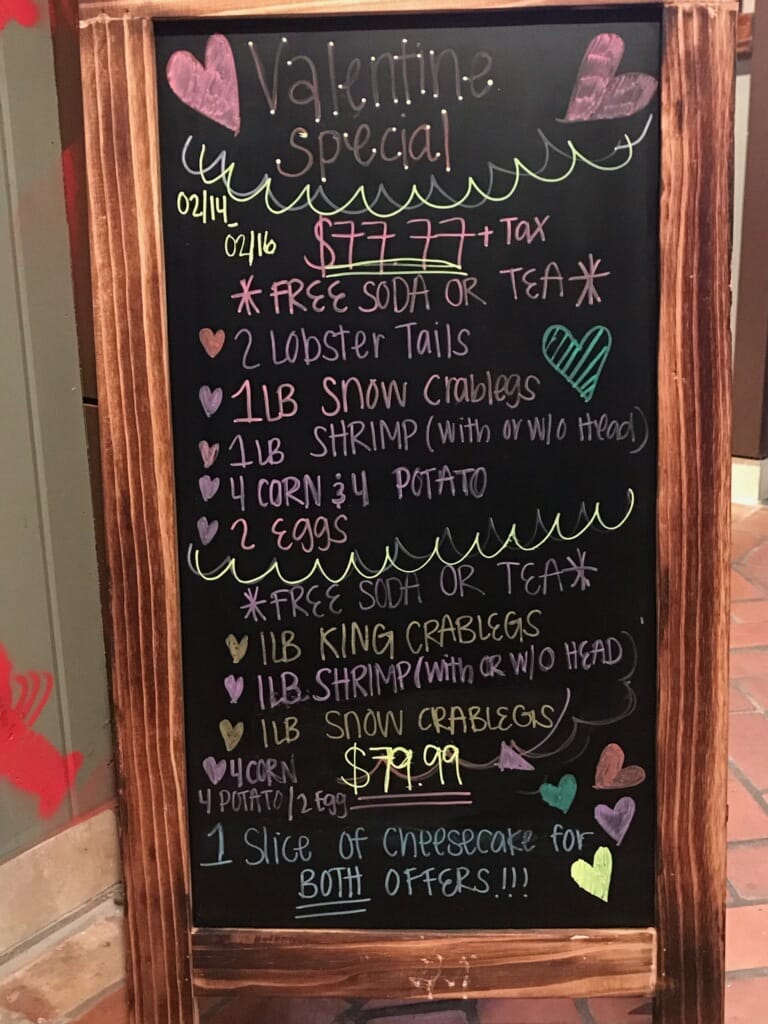 Valentine
Special
02/14-
02/16
$77.77 + TAX
*FREE SODA OR TEA*
2 Lobster Tails
1LB Snow Crablegs
1LB SHRIMP (with or w/o Head)
4 CORN & 4 POTATO
2 Eggs
*FREE SODA OR TEA*
1LB KING CRABLEGS
1LB SHRIMP (with OR W/O HEAD
1LB SNOW CRABLEGS
4 CORN
$79.99
4 POTATO / 2 Egg
1 Slice of Cheesecake for
BOTH OFFERS!!!